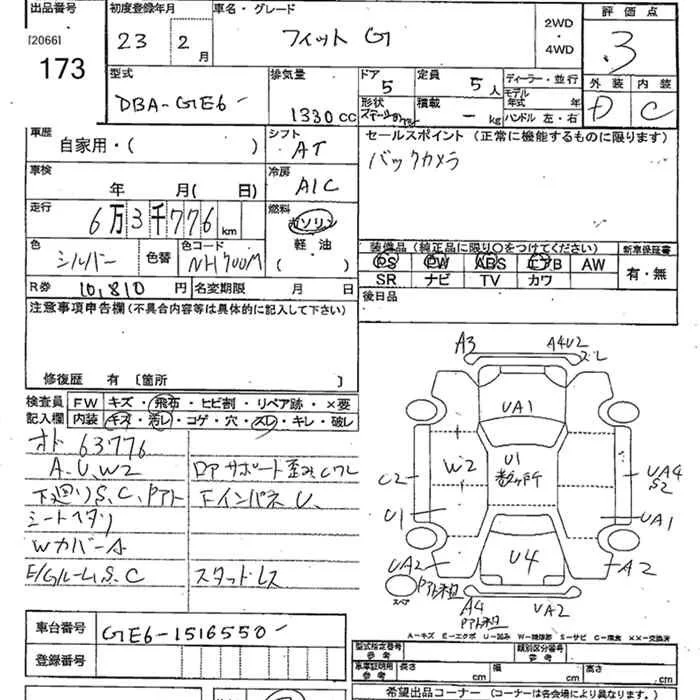 出品番号 初度登録年月 車名・グレード 2WD・4WD 評価点
[2066] 23年 2月 フィット G 3
173
型式 排気量 ドア 5 定員 5人 ディーラー・並行 外装 内装
DBA-GE6- 1330CC 形状 積載 - kg モデル年式 年 D C
ハンドル 左・右
車歴 自家用・( ) シフト AT セールスポイント (正常に機能するものに限ります)
バックカメラ
車検 年 月( 日) 冷房 A/C
走行 6万3千776km 燃料 ガソリン 軽油 ( )
色 シルバー 色替 色コード NH700M
装備品(純正品に限り○をつけてください) 新車保証書
PS PW ABS エアB AW 有・無
SR ナビ TV カワ
R券 10,810円 名変期限 月 日 後日品
注意事項申告欄(不具合内容等は具体的に記入して下さい)
修復歴 有 〔箇所 〕
検査員記入欄 FW キズ・飛石・ヒビ割・リペア跡・×要
内装 キズ・汚レ・コゲ・穴・スレ・キレ・破レ
オド 63776
A.U.W2 ロアサポート歪み、Cワレ
下廻りS.C、Pアト 下インパネU、
シートヘタリ
WカバーA
E/GルームS.C スタッドレス
A3 A4U2 ズレ
UA1
U1 数ヶ所
W2
C2
U1
UA4 S2
UA1
UA2
U4
A2
スペア
Pアト
A4
UA2
A-キズ E-エクボ U-凹み W-補修跡 S-サビ C-腐食 ××-交換済
車台番号 GE6-1516550-
登録番号
型式指定番号 参考 類別区分番号 参考
車車証明用 参考 長さ cm 幅 cm 高さ cm
希望出品コーナー (コーナーは各会場により異なります。)